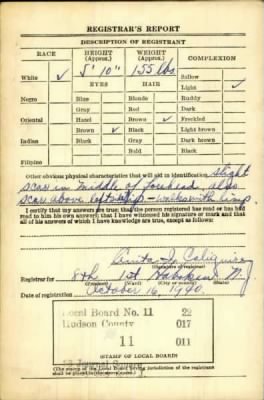 REGISTRAR'S REPORT
DESCRIPTION OF REGISTRANT
RACE HEIGHT (Approx.) WEIGHT (Approx.) COMPLEXION
5' 10" 155 lbs.
White ✓ EYES HAIR Sallow
Light ✓
Negro Blue Blonde Ruddy
Gray Red Dark
Oriental Hazel Brown ✓ Freckled
Brown ✓ Black Light brown
Indian Black Gray Dark brown
Bald Black
Filipino
Other obvious physical characteristics that will aid in identification slight
scar in middle of forehead, also
scar above left - walks with limp
I certify that my answers are true; that the person registered has read or has had
read to him his own answers; that I have witnessed his signature or mark and that
all of his answers of which I have knowledge are true, except as follows:
(Signature of registrar)
Registrar for 8th 1st Hoboken N.J.
Date of registration October 16, 1940
Local Board No. 11 22
Hudson County 017
11 011
Journal Square
(STAMP OF LOCAL BOARD)
(The stamp of the Local Board having jurisdiction of the registrant
shall be placed in the above space.)